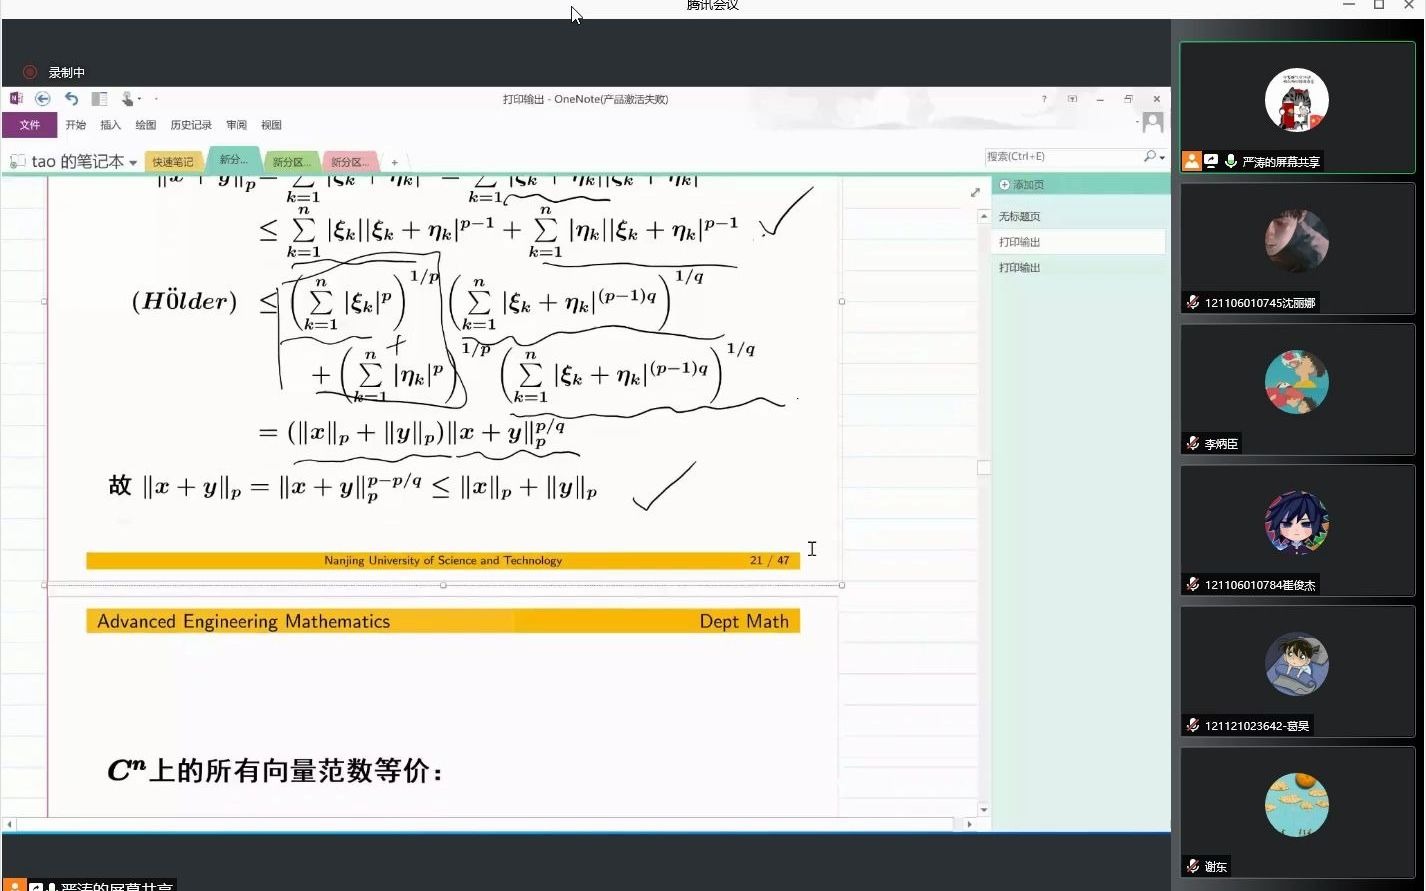 腾讯会议
录制中
打印输出 - OneNote(产品激活失败)
文件 开始 插入 绘图 历史记录 审阅 视图
tao 的笔记本 快速笔记 新分... 新分区... 新分区... +
搜索(Ctrl+E)
添加页
无标题页
打印输出
打印输出
≤ ∑_{k=1}^{n} |ξ_k||ξ_k + η_k|^{p−1} + ∑_{k=1}^{n} |η_k||ξ_k + η_k|^{p−1}
(Hölder) ≤ (∑_{k=1}^{n} |ξ_k|^p)^{1/p} (∑_{k=1}^{n} |ξ_k + η_k|^{(p−1)q})^{1/q}
+
+ (∑_{k=1}^{n} |η_k|^p)^{1/p} (∑_{k=1}^{n} |ξ_k + η_k|^{(p−1)q})^{1/q}
= (‖x‖_p + ‖y‖_p)‖x + y‖_p^{p/q}
故 ‖x + y‖_p = ‖x + y‖_p^{p−p/q} ≤ ‖x‖_p + ‖y‖_p
Nanjing University of Science and Technology 21 / 47
Advanced Engineering Mathematics Dept Math
C^n上的所有向量范数等价：
严涛的屏幕共享
121106010745沈丽娜
李炳臣
121106010784崔俊杰
121121023642-葛昊
谢东
严涛的屏幕共享